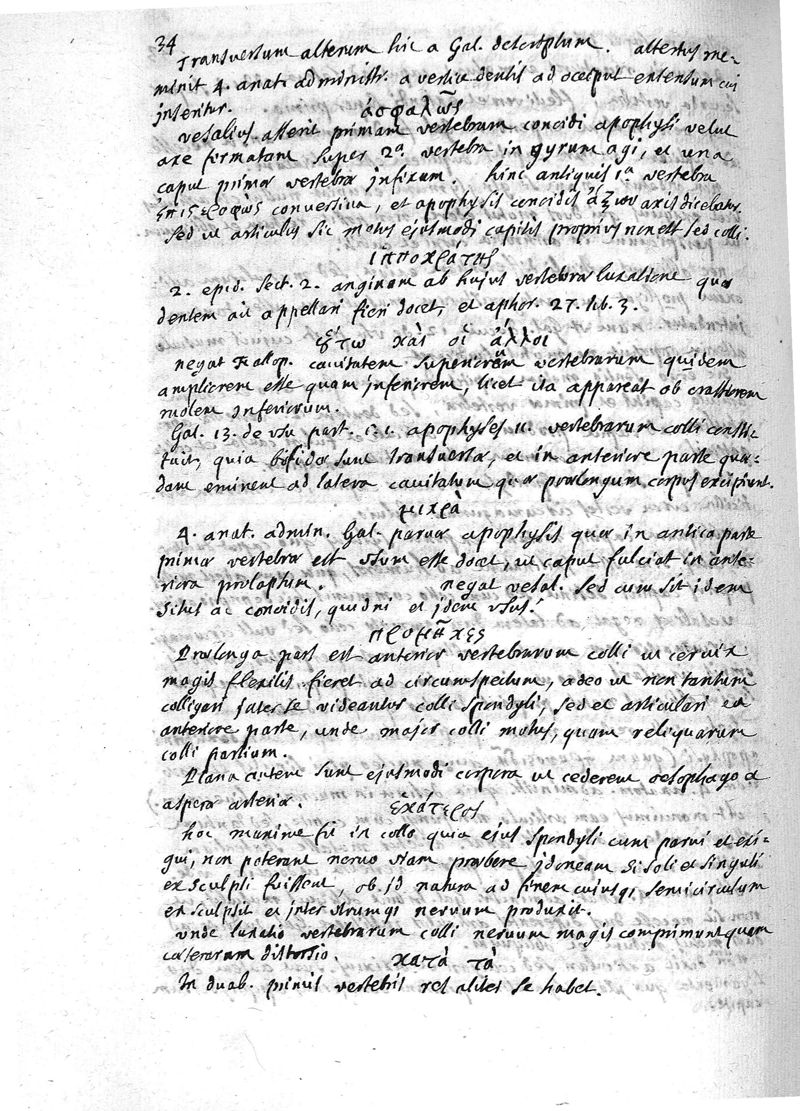 34
Transversum alterum hic a Gal. descriptum. alterius me-
minit 4. anat. administr. a vertice dentis ad occiput extentum cui
inseritur.
ἀσφαλῶς
Vesalius asserit primam vertebram concidi apophysi velut
axe firmatam super 2ª vertebra in gyrum agi, et una
caput primæ vertebræ infixum. hinc antiquis 1ª vertebra
ἐπιστροφὼς conversiva, et apophysis concidis ἄξων axis dicebatur.
Sed ut articulus sic motus ejusmodi capitis proprius non est sed colli.
ἱπποκράτης
2. epid. sect. 2. anginam ab hujus vertebræ luxatione quæ
dentem ait appellari fieri docet, et aphor. 27. lib. 3.
οὕτω καὶ οἱ ἄλλοι
negat Fallop. cavitatem superiorem vertebrarum quidem
ampliorem esse quam inferiorem, licet ita appareat ob crassiorem
molem inferiorum.
Gal. 13. de usu part. c. 1. apophyses 11. vertebrarum colli consti-
tuit, quia bifidæ sunt transversæ, et in anteriore parte quæ-
dam eminent ad latera cavitatum quæ prælongum corpus excipiunt.
μικρὰ
4. anat. admin. Gal. parvæ apophysis quæ in antica parte
primæ vertebræ est usum esse docet, ut caput fulciat in ante-
riora prolapsum. negat Vesal. sed cum sit idem
situs ac concidis, quidni et idem usus?
προμῆκες
Prælonga pars est anterior vertebrarum colli ut cervix
magis flexilis fieret ad circumspectum, adeo ut non tantum
colligari inter se videantur colli spondyli, sed et articulari ea
anteriore parte, unde major colli motus, quam reliquarum
colli partium.
Plana autem sunt ejusmodi corpora ut cederem oesophago a
aspera arteria.
ἑκάτερος
hoc maxime fit in collo quia ejus spondyli cum parvi et exi-
gui, non poterant nervo viam præbere idoneam si soli et singuli
exsculpti fuissent, ob id natura ad finem cuiusq; semicirculum
exsculpsit et inter utrumq; nervum produxit.
unde luxatio vertebrarum colli nervum magis comprimunt quam
cæterarum distorsio.
κατὰ τὰ
In duab. primis vertebris res aliter se habet.